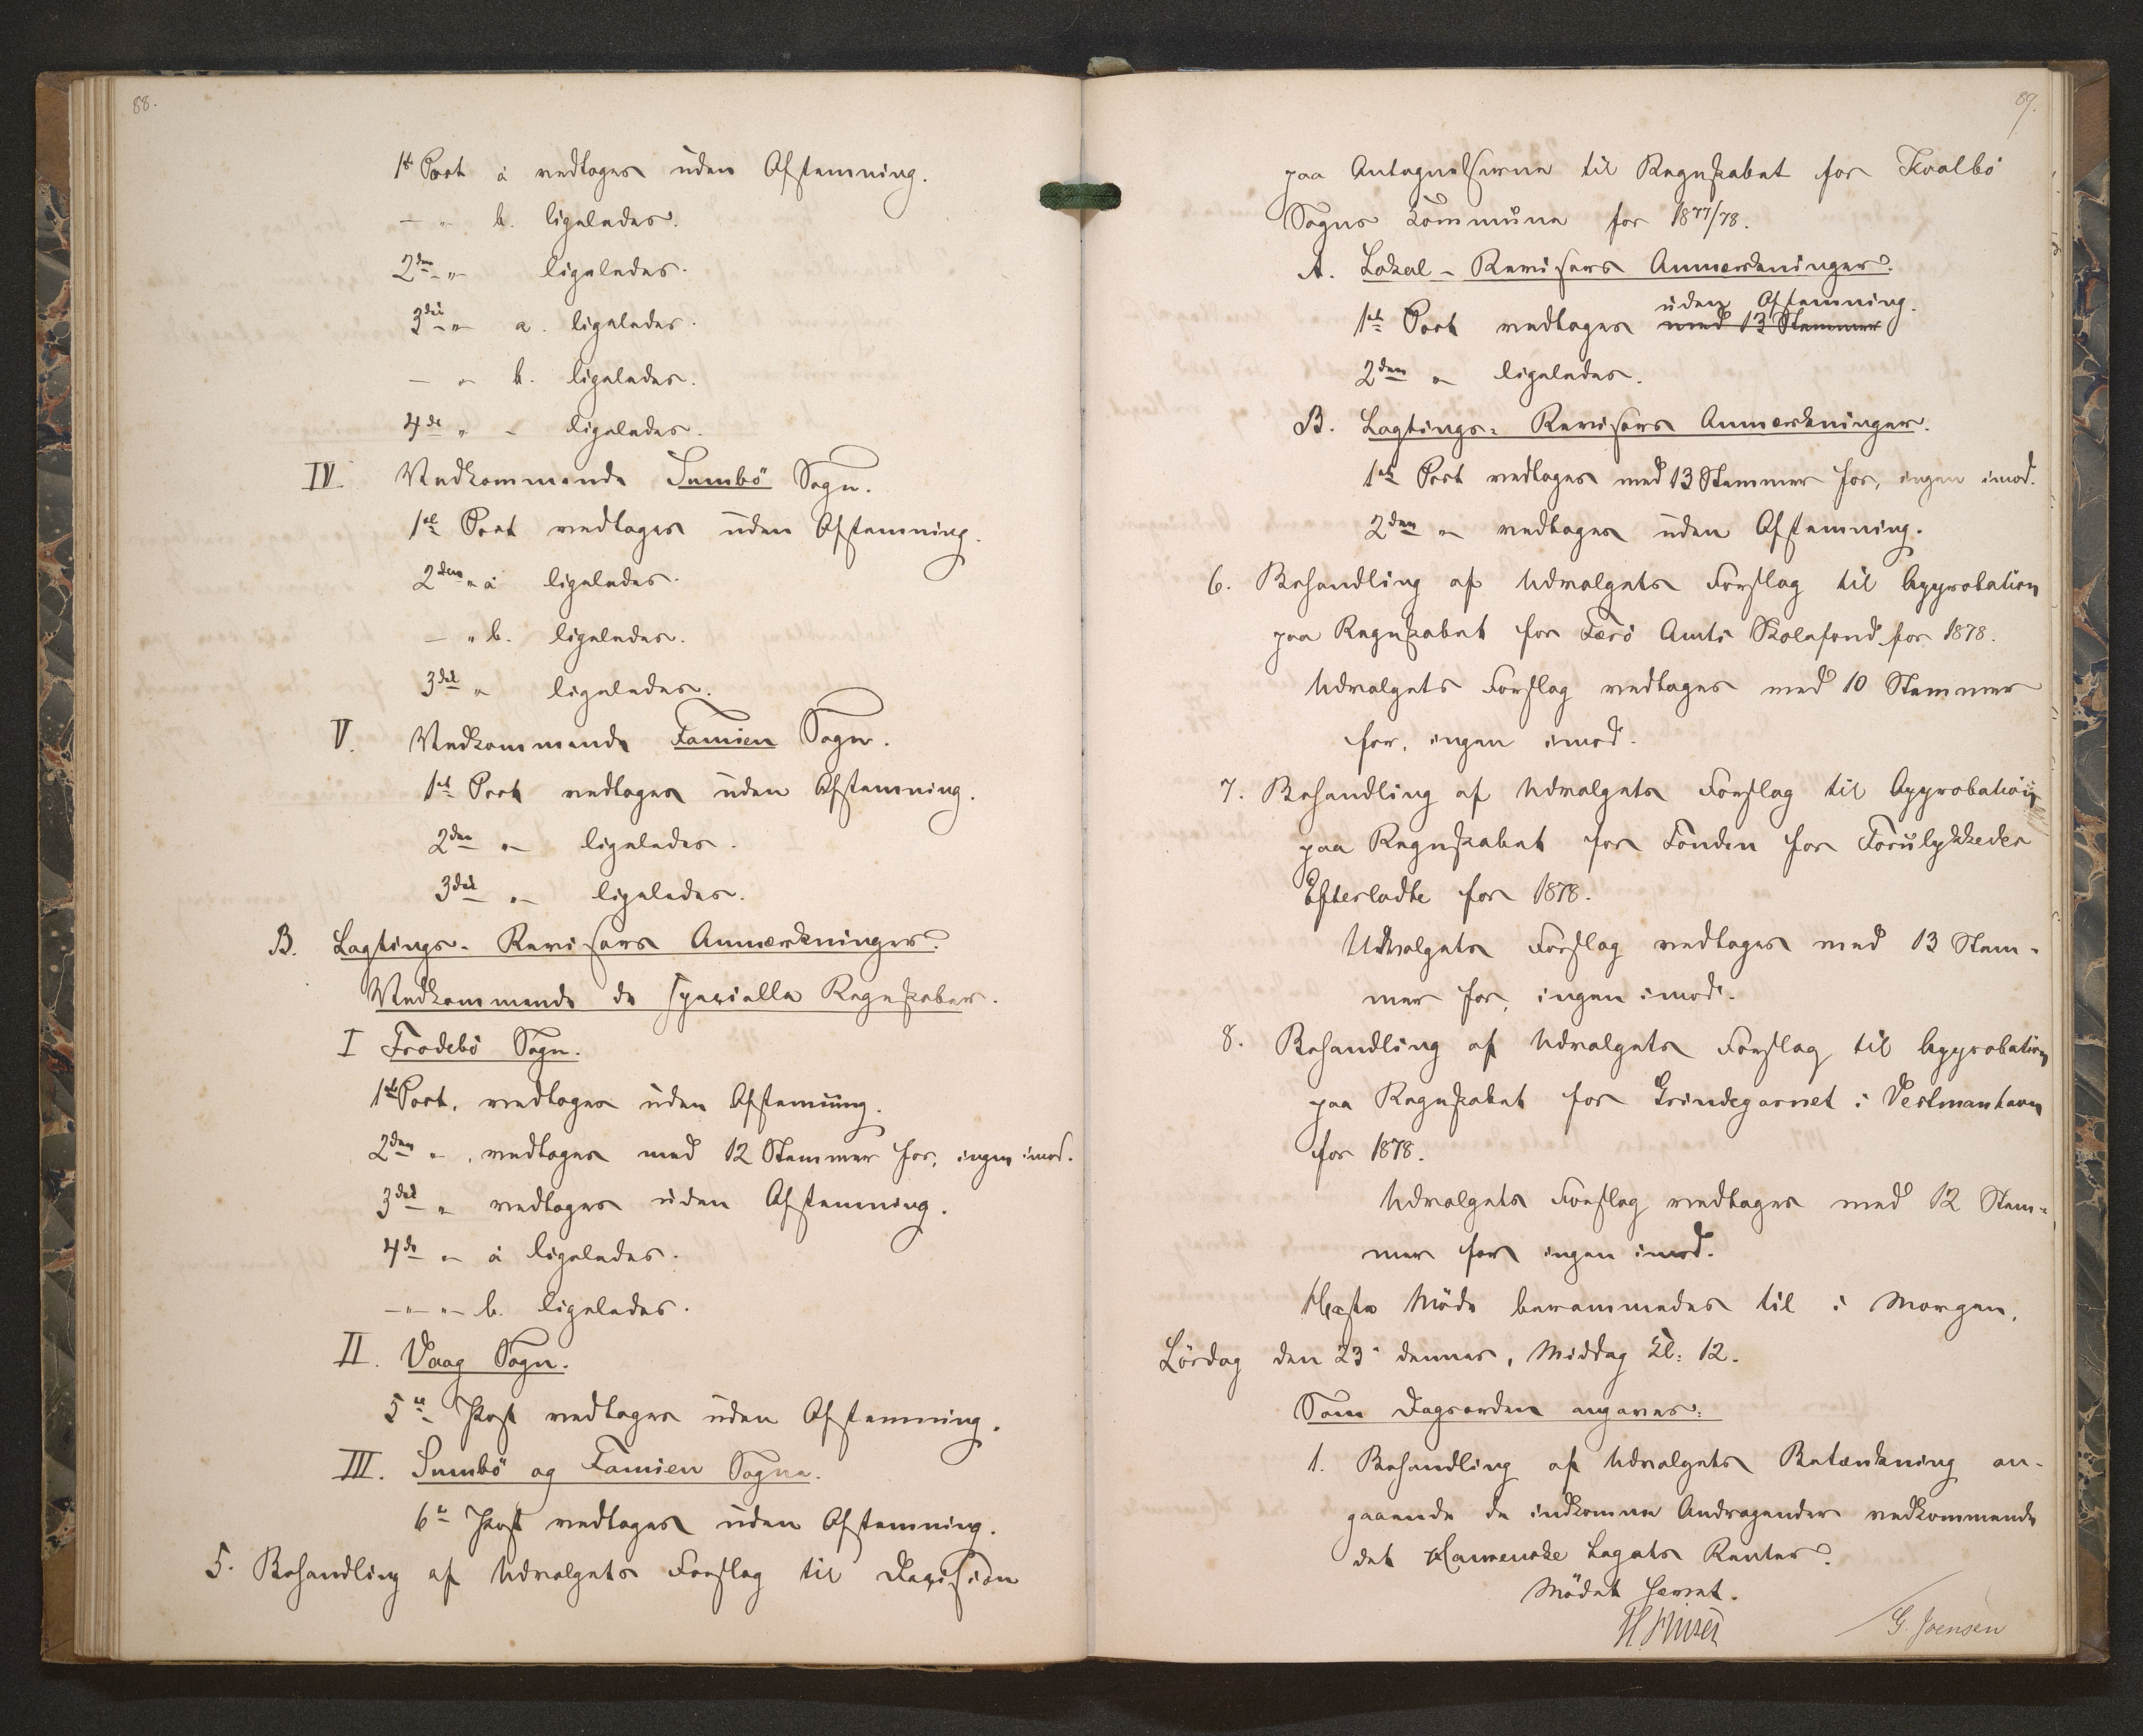 88.
1ste Post a vedtoges uden Afstemning.
— " b. ligeledes.
2den " ligeledes.
3die " a. ligeledes.
— " b. ligeledes.
4de " - ligeledes.
IV Vedkommende Sumbö Sogn.
1ste Post vedtoges uden Afstemning.
2den " a ligeledes.
— " b. ligeledes.
3die " ligeledes.
V. Vedkommende Famien Sogn.
1ste Post vedtoges uden Afstemning.
2den " ligeledes.
3die " ligeledes.
B. Lagtings-Revisors Anmærkninger.
Vedkommende de specielle Regnskaber.
I Frodebö Sogn.
1ste Post, vedtoges uden Afstemning.
2den ", vedtoges med 12 Stemmer for, ingen imod.
3die " vedtoges uden Afstemning.
4de " a ligeledes.
— " — b. ligeledes.
II. Vaag Sogn.
5te Post vedtoges uden Afstemning.
III. Sumbö og Famien Sogne.
6te Post vedtoges uden Afstemning.
5. Behandling af Udvalgets Forslag til Decision
89.
paa Antegnelserne til Regnskabet for Kvalbö
Sogns Kommune for 1877/78.
A. Lokal-Revisors Anmærkninger.
uden Afstemning.
1ste Post vedtoges med 13 Stemmer
2den " ligeledes.
B. Lagtings-Revisors Anmærkninger.
1ste Post vedtoges med 13 Stemmer for, ingen imod.
2den " vedtoges uden Afstemning.
6. Behandling af Udvalgets Forslag til Approbation
paa Regnskabet for Færö Amts Skolefond for 1878.
Udvalgets Forslag vedtoges med 10 Stemmer
for, ingen imod.
7. Behandling af Udvalgets Forslag til Approbation
paa Regnskabet for Fonden for Forulykkedes
Efterladte for 1878.
Udvalgets Forslag vedtoges med 13 Stem-
mer for, ingen imod.
8. Behandling af Udvalgets Forslag til Approbation
paa Regnskabet for Grindegarnet i Vestmanhavn
for 1878.
Udvalgets Forslag vedtoges med 12 Stem-
mer for ingen imod.
Næste Möde berammedes til i Morgen,
Lördag den 23de dennes, Middag Kl. 12.
Som Dagsorden angaves:
1. Behandling af Udvalgets Betænkning an-
gaaende de indkomne Andragender vedkommende
det Hamenske Legats Renter.
Mödet hævet.
G. Joensen